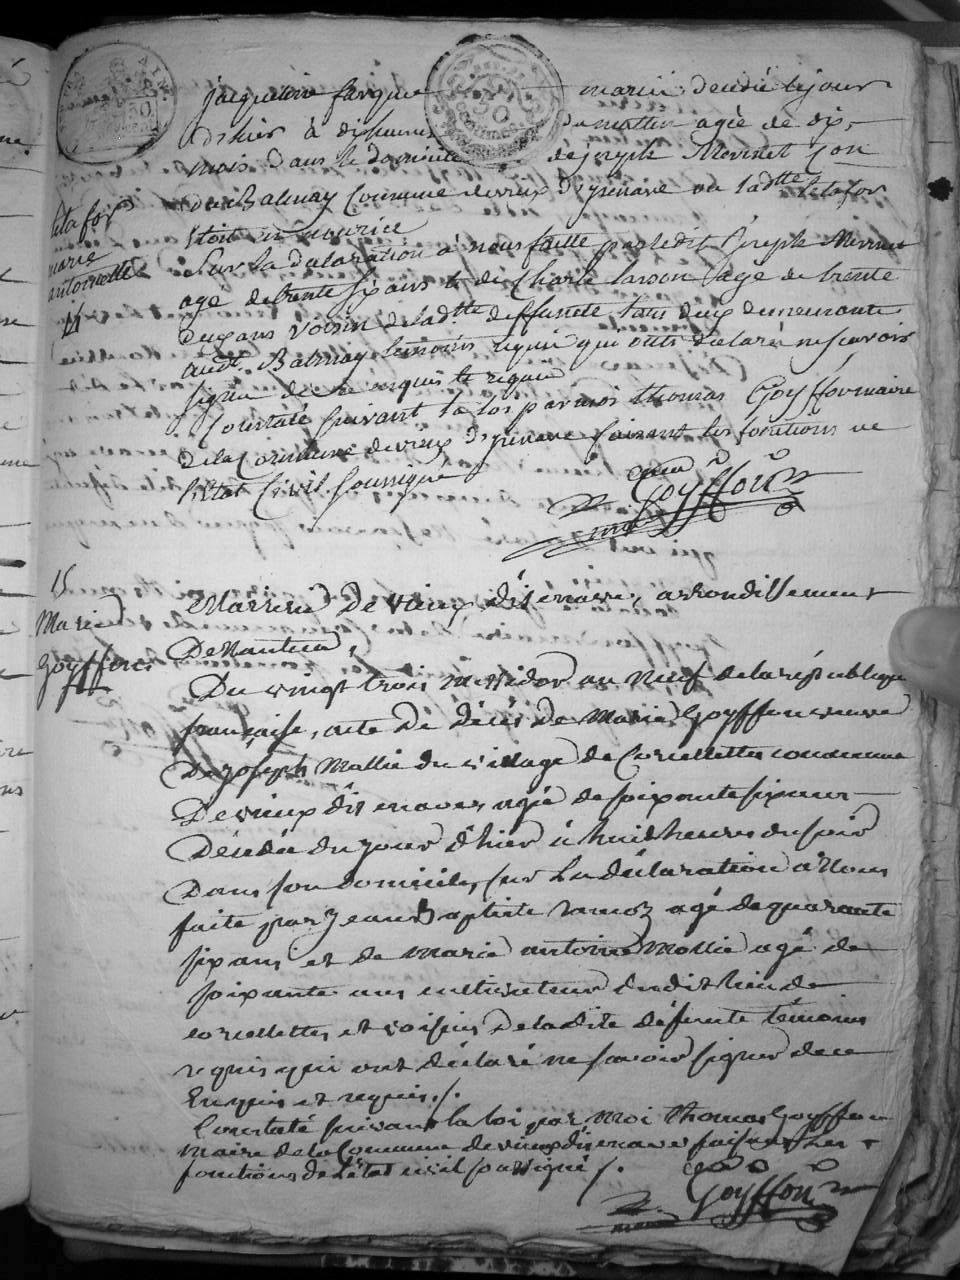 jacqueline fargue mariée décédé le jour
d'hier à dix heures du mattin agée de dix
mois dans le domicile de joseph Mermet son
de Balmay Commune de vieux d'izenave ou ladtte letafor
étoit en nourice
Sur la declaration à nous faitte par ledit Joseph Mermet
agé de trente six ans et de Charle agé de trente
deux ans voisin de ladtte deffuncte tous deux demeurants
audt. Balmay temoins requis qui onts déclaré ne scavoir
signer de ce enquis et requis
Constaté suivant la loi par moi thomas Goyffon maire
de la Commune de vieux d'izenave faisant les fonctions de
l'état Civil soussigné
Goyffon
letafor
marie
antoinette
14
15
Marie
Goyffon
Mairie de vieux dizenave, arrondissement
De Nantua,
Du vingt trois messidor an neuf de la république
française, acte de décès de Marie Goyffon veuve
De joseph Mallié du village de Corcellettes commune
De vieux dis enaves agée de soixante six ans
Décédée du jour d'hier à huit heures du soir
Dans son domicile, sur la déclaration à Nous
faite par Jean Baptiste ramoz agé de quarante
six ans et de marie antoine Mollié agé de
soixante ans cultivateur dudit lieu de
corcellettes et voisins de ladite défunte témoins
requis qui ont déclaré ne savoir signer de ce
Enquis et requis /.
Constaté suivant la loi par moi thomas Goyffon
maire de la Commune de vieux dis enaves faisant les
fonctions de l'état civil soussigné /.
Goyffon